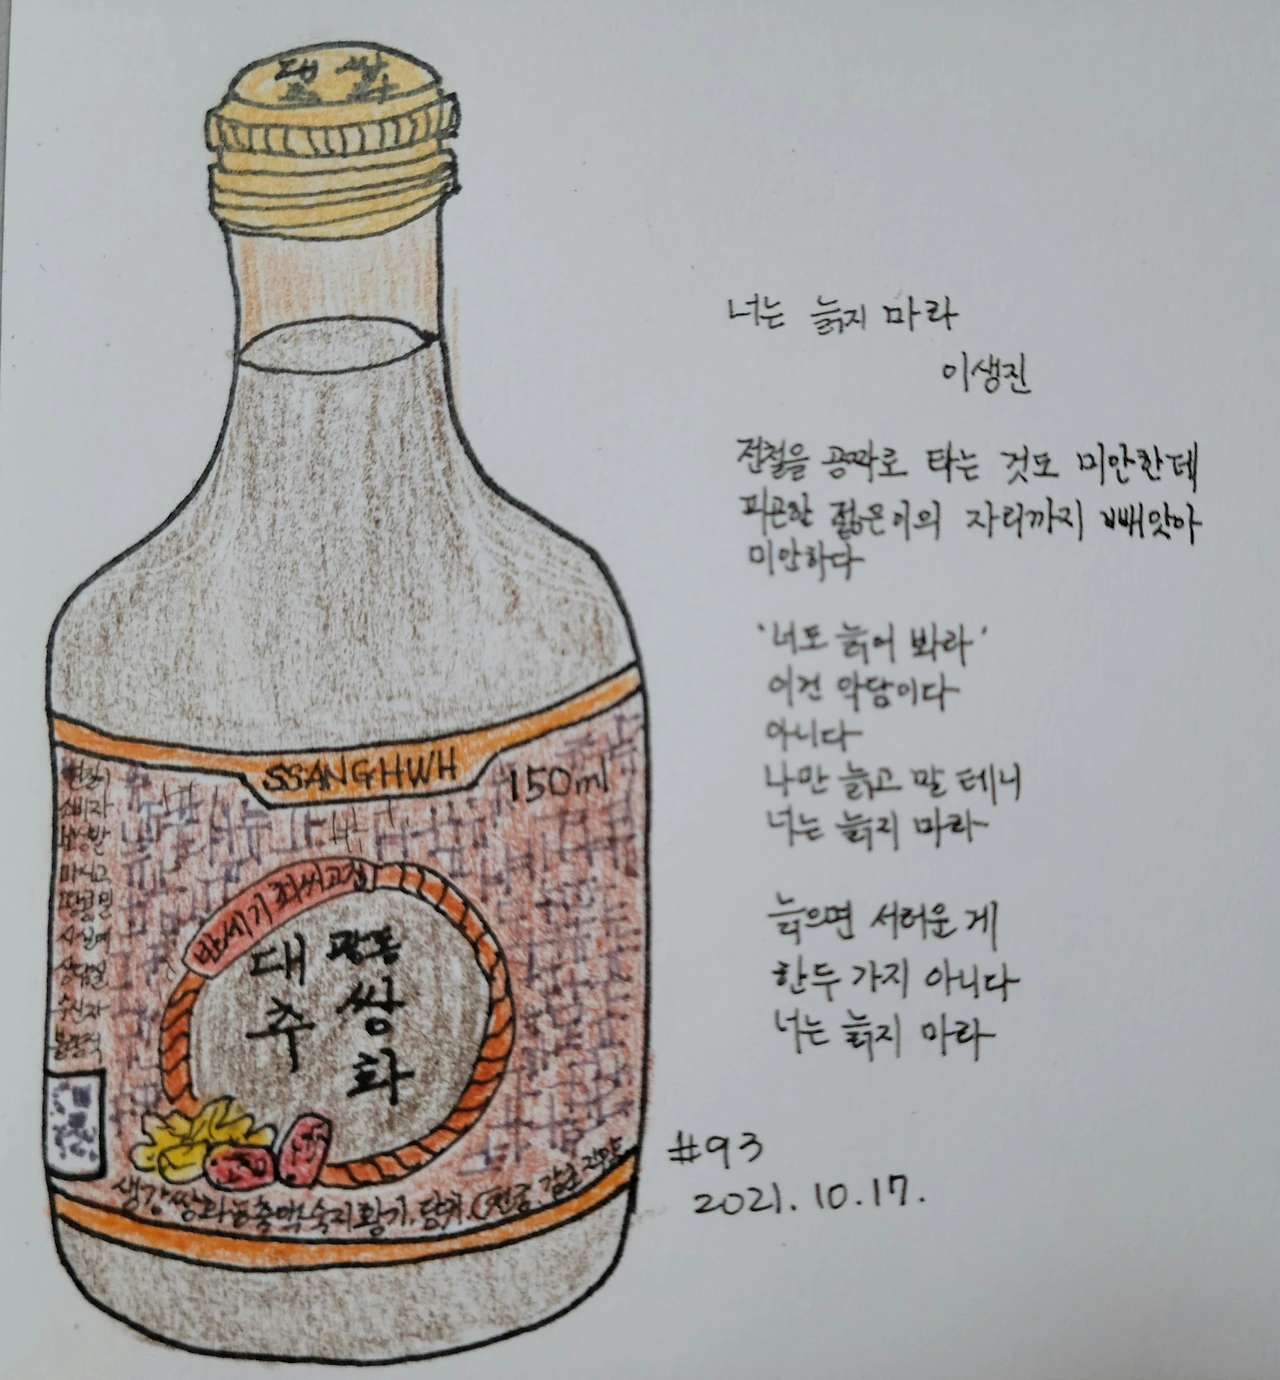 대 쌍
추 화
SSANGHWH
150ml
소비자
보상반
마시고
상담실
수신자
반세기
대 광동
추 쌍화
생강 쌍화 숙지황 황기, 당귀, 감초
너는 늙지 마라
이생진
전철을 공짜로 타는 것도 미안한데
피곤한 젊은이의 자리까지 빼앗아
미안하다
'너도 늙어 봐라'
이건 악담이다
아니다
나만 늙고 말 테니
너는 늙지 마라
늙으면 서러운 게
한두 가지 아니다
너는 늙지 마라
#93
2021. 10. 17.